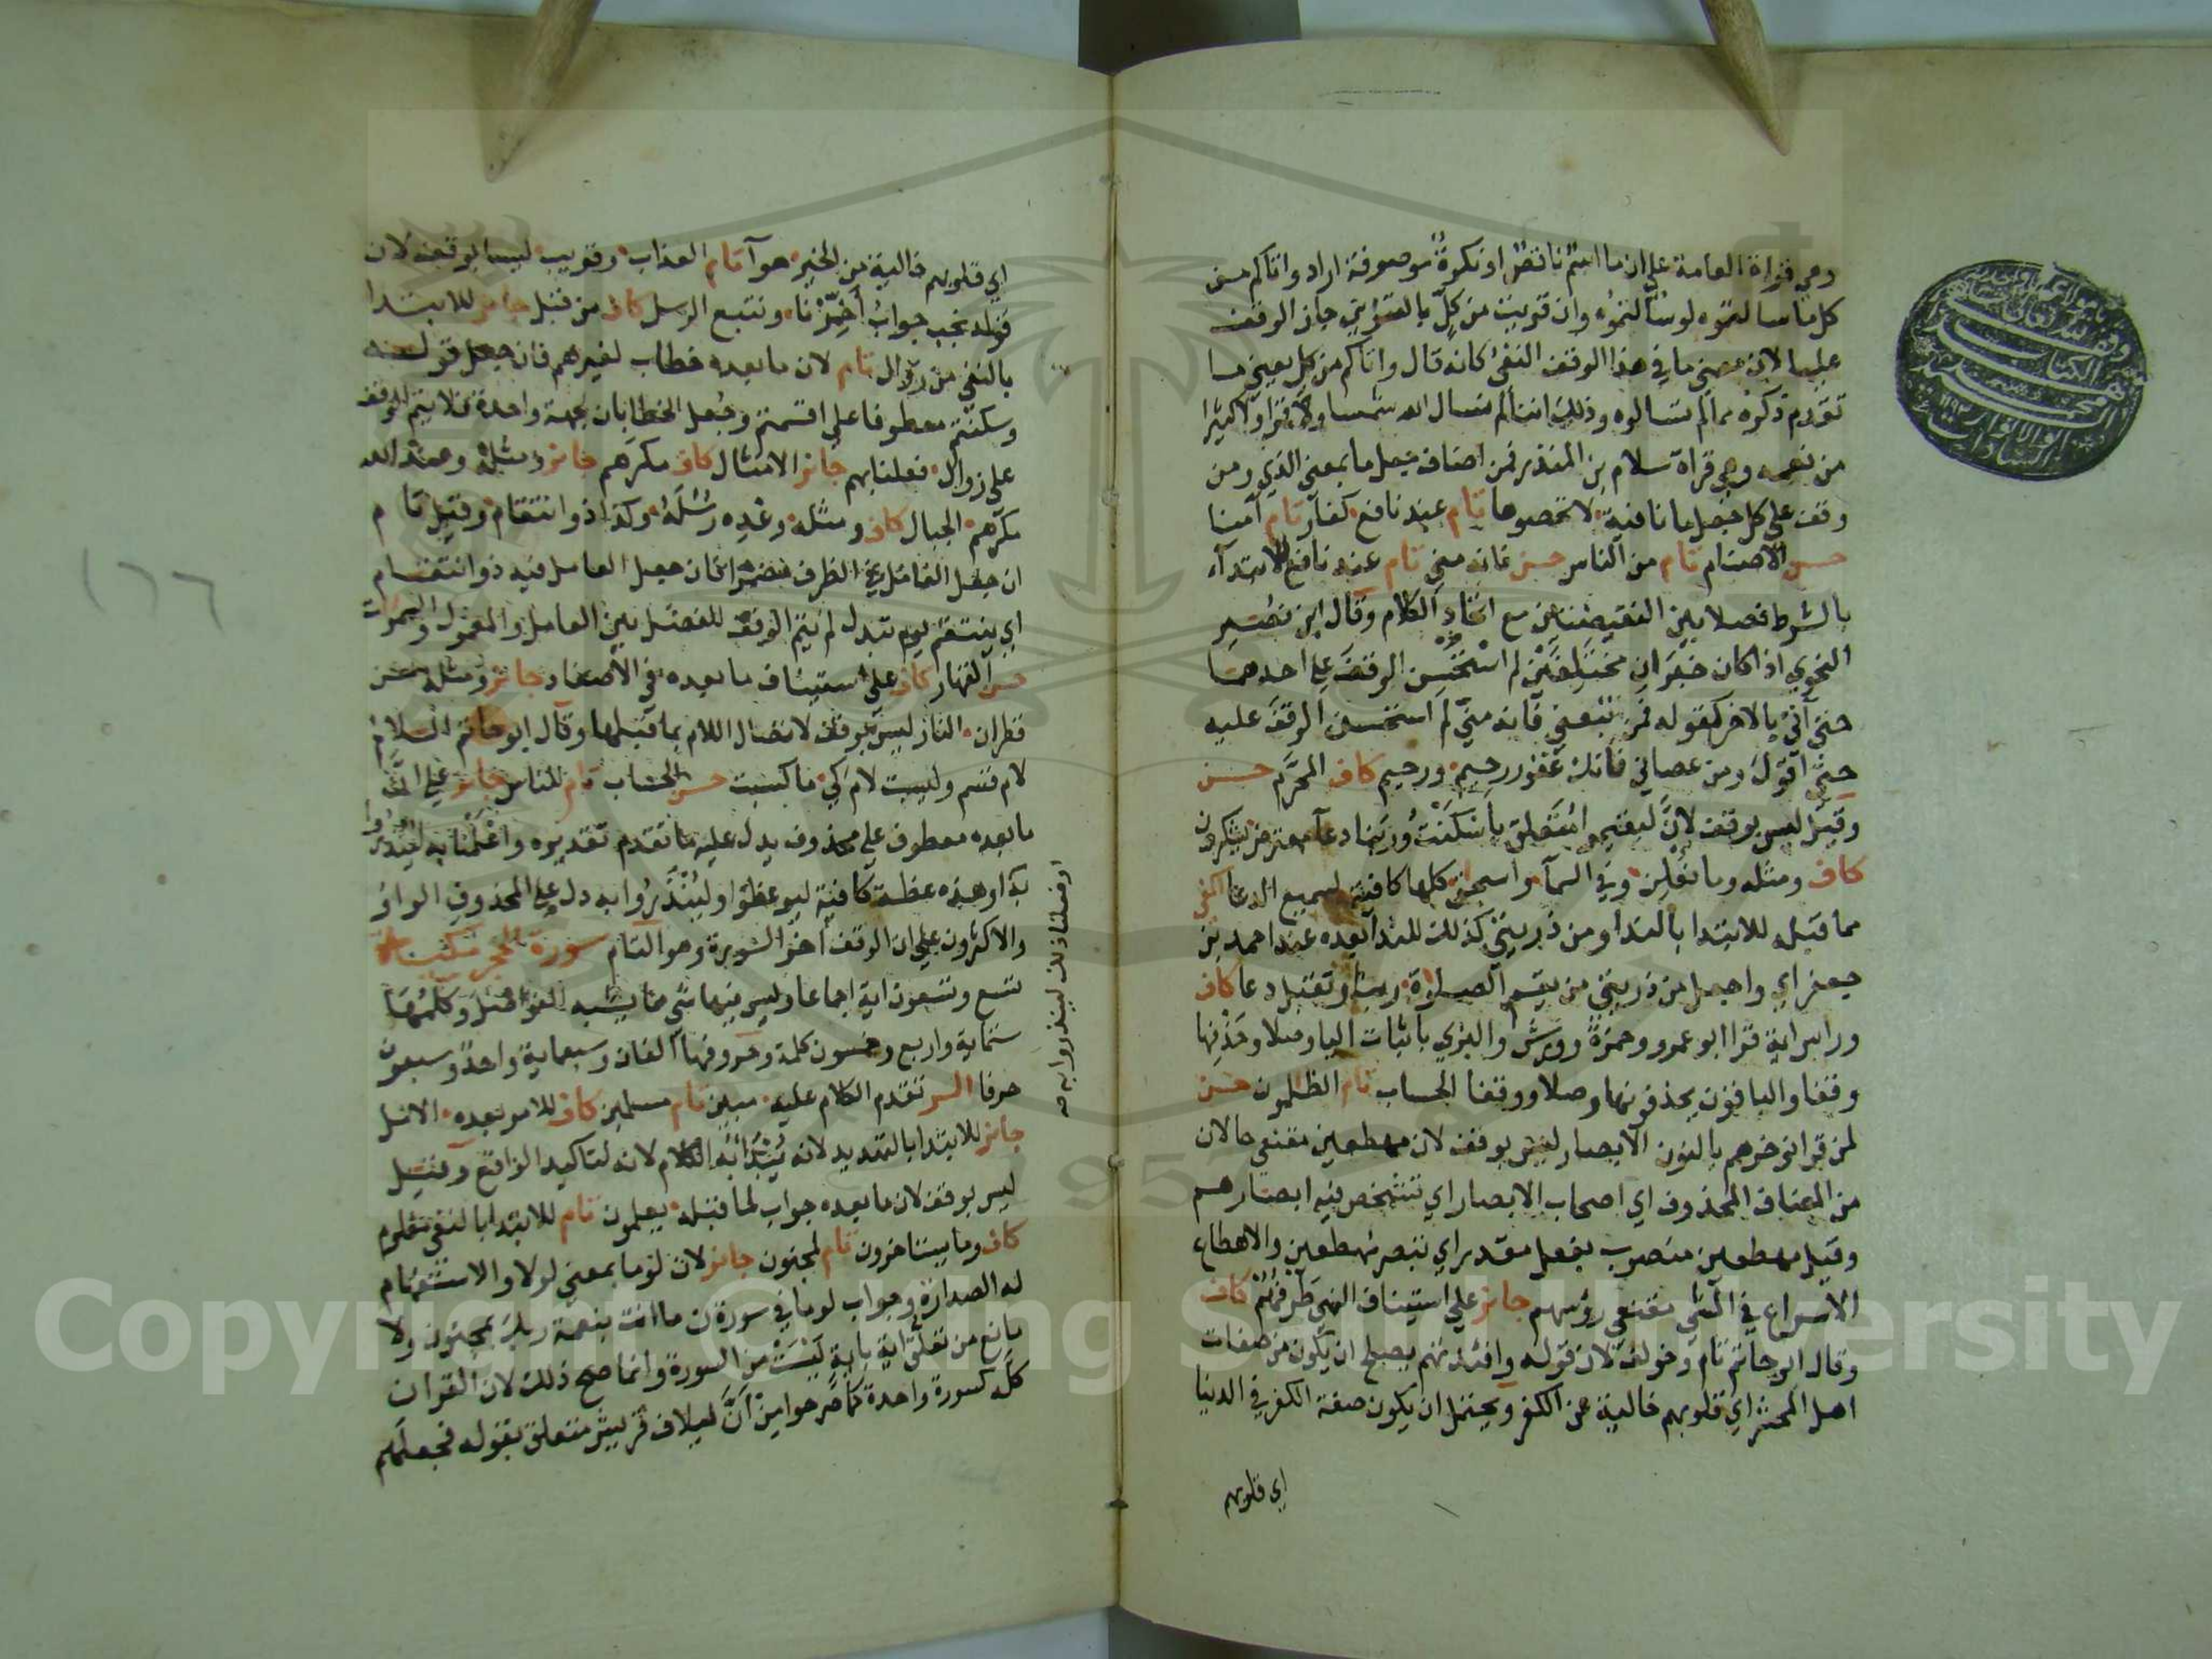 وهي قراة العامة على ان ما اسم ناقص او نكرة موصوفة اراد واتاكم من
كل ما سالتموه لو سالتموه وان قريت من كل بالتنوين جاز الوقف
عليها لان معنى ما في هذا الوقف النفي كانه قال واتاكم من كل يعني ما
تقدم ذكره مما لم تسالوه وذلك اننا لم نسال الله شمسا ولا قمرا ولا كثيرا
من نعمه وهي قراة سلام بن المنذر فمن اضاف جعل ما بمعنى الذي ومن
وقف على كل جعل ما نافية لا تحصوها تام عند نافع كفار تام آمنا
حسن الاصنام تام من الناس حسن فانه مني تام عند نافع للابتدآء
بالشرط فصلا بين النقيضين مع اتحاد الكلام وقال ابن نصير
النحوي اذا كان خبران مختلفين لم استحسن الوقف على احدهما
حتى آتي بالاخر كقوله فمن تبعني فانه مني لم استحسن الوقف عليه
حتى اقول ومن عصاني فانك غفور رحيم ورحيم كاف المحرم حسن
وقيل ليس بوقف لان ليقيموا متعلق باسكنت وربنا دعآ معترض يشكرون
كاف ومثله وما نعلن وفي السمآ واسحق كلها كافية لسميع الدعا اكفى
مما قبله للابتدا بالندا ومن ذريتي كذلك للندا بعده عند احمد بن
جعفر اي واجعل من ذريتي من يقيم الصلوة ربنا وتقبل دعا كاف
وراس اية قرا ابو عمرو وحمزة وورش والبزي باثبات اليا وصلا وحذفها
وقفا والباقون يحذفونها وصلا ووقفا الحساب تام الظلمون حسن
لمن قرا نوخرهم بالنون الابصار ليس بوقف لان مهطعين مقنعي حالان
من المضاف المحذوف اي اصحاب الابصار اي تشخص فيه ابصارهم
وقيل مهطعين منصوب بفعل مقدر اي تبصر مهطعين والاهطاع
الاسراع في المشي مقنعي رؤسهم جائز على استيناف النهي طرفهم كاف
وقال ابو حاتم تام وخولف لان قوله وافئدتهم يصلح ان يكون من صفات
اهل المحشر اي قلوبهم خالية عن الكفر ويحتمل ان يكون صفة الكفر في الدنيا
اي قلوبهم
اي قلوبهم خالية من الخير هوآ تام العذاب وقريب ليسا بوقف لان
قوله نجب جواب أخرنا ونتبع الرسل كاف من قبل جائز للابتدا
بالنفي من زوال تام لان ما بعده خطاب لغيرهم فان جعل قوله
وسكنتم معطوفا على اقسمتم وجعل الخطابان لجهة واحدة فلا يتم الوقف
على زوال فعلنا بهم جائز الامثال كاف مكرهم جائز ومثله وعند الله
مكرهم الجبال كاف ومثله وعده رسله وكذا ذو انتقام وقيل تام
ان جعل العامل في الظرف مضمرا فان جعل العامل فيه ذو انتقام
اي ينتقم يوم تبدل لم يتم الوقف للفصل بين العامل والمعمول والسموات
حسن القهار كاف على استيناف ما بعده في الاصفاد جائز ومثله من
قطران النار ليس بوقف لاتصال اللام بما قبلها وقال ابو حاتم اللام
لام قسم وليست لام كي ما كسبت حسن الحساب تام للناس جائز على ان
ما بعده معطوف على محذوف يدل عليه ما تقدم تقديره واعلمنا به لينذروا
به او هذه عظة كافية ليوعظوا ولينذروا به دل على المحذوف الواو
والاكثرون على ان الوقف آخر السورة وهو التام سورة الحجر مكية
تسع وتسعون اية اجماعا وليس فيها شي مما يشبه الفواصل وكلمها
ستماية واربع وخمسون كلمة وحروفها الفان وسبعماية واحد وسبعون
حرفا الر تقدم الكلام عليه مبين تام مسلمين كاف للامر بعده الامل
جائز للابتدا بالتهديد لانه يبتدأ به الكلام لانه لتاكيد الواقع وقيل
ليس بوقف لان ما بعده جواب لما قبله يعلمون تام للابتدا بالنفي معلوم
كاف وما يستاخرون تام لمجنون جائز لان لوما بمعنى لولا والاستفهام
له الصدارة وجواب لوما في سورة ن ما انت بنعمة ربك بمجنون ولا
مانع من تعلق اية باية ليست من السورة وانما صح ذلك لان القران
كله كسورة واحدة كما صرحوا من ان لئيلاف قريش متعلق بقوله فجعلهم
او فعلنا ذلك لينذروا به صح
١٦٦
Copyright © King Saud University
1957